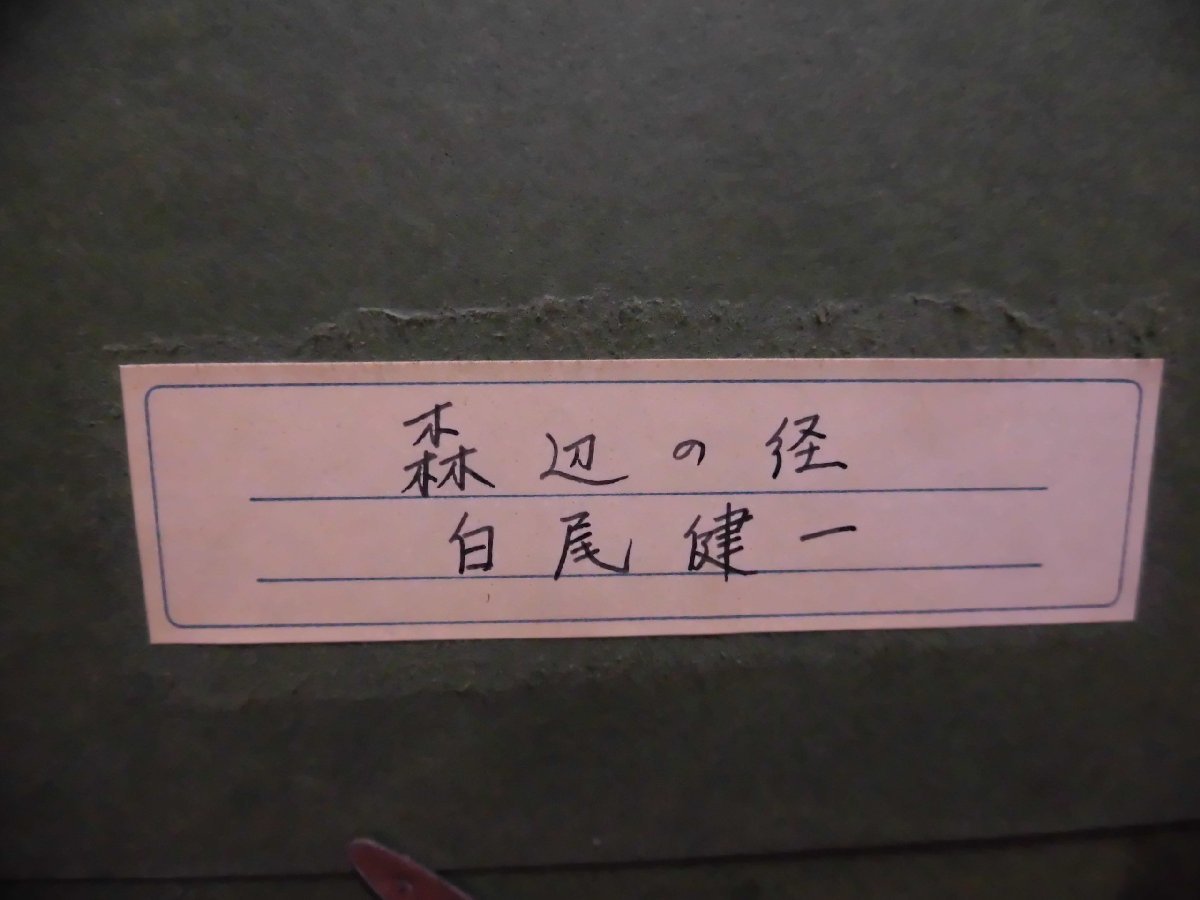 森辺の径
白尾健一